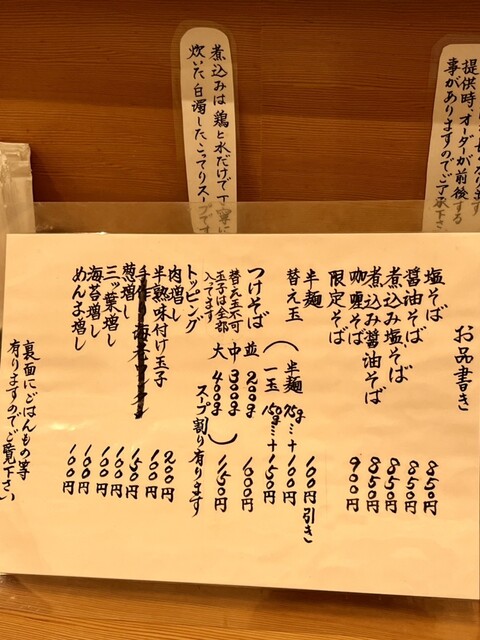 提供時、オーダーが前後する
事がありますのでご了承下さ
煮込みは鶏と水だけで丁寧に
炊いた白濁したこってりスープです
お品書き
塩そば 850円
醤油そば 850円
煮込み塩そば 850円
煮込み醤油そば 850円
咖喱そば 900円
限定そば
半麺 100円引き
替え玉（半麺 75g…＋100円
一玉 150g…＋150円
つけそば 並 200g 1000円
替え玉不可 中 300g
玉子は全部 大 400g 1150円
入てます
スープ割り有ります
トッピング
肉増し 200円
半熟味付け玉子 100円
150円
葱増し 100円
三ッ葉増し 100円
海苔増し 100円
めんま増し 100円
裏面にごはんもの等
有りますのでご覧下さい